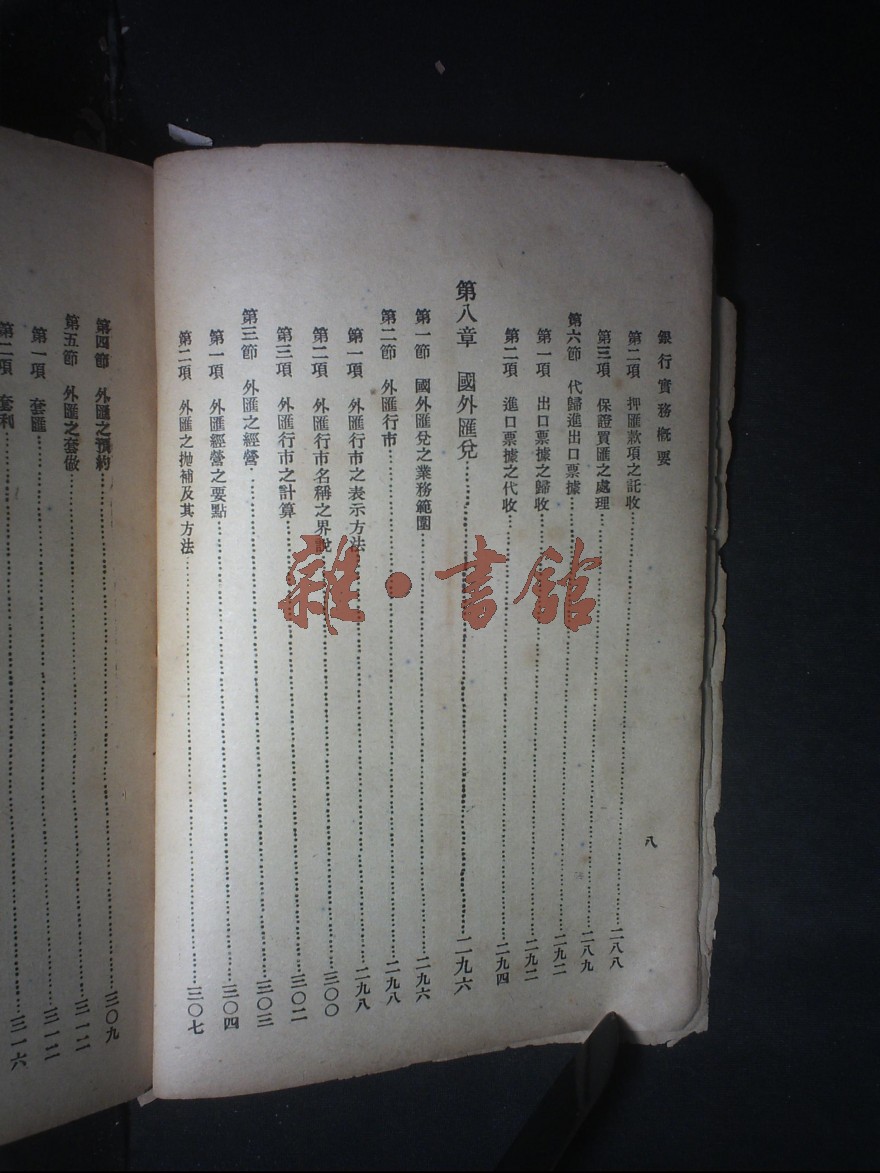 銀行實務概要
八
第二項 押匯款項之託收……二八八
第三項 保證買匯之處理……二八九
第六節 代歸進出口票據……二九二
第一項 出口票據之歸收……二九二
第二項 進口票據之代收……二九四
第八章 國外匯兌……二九六
第一節 國外匯兌之業務範圍……二九六
第二節 外匯行市……二九八
第一項 外匯行市之表示方法……二九八
第二項 外匯行市名稱之界說……三〇〇
第三項 外匯行市之計算……三〇二
第三節 外匯之經營……三〇三
第一項 外匯經營之要點……三〇四
第二項 外匯之拋補及其方法……三〇七
第四節 外匯之預約……三〇九
第五節 外匯之套做……三一二
第一項 套匯……三一二
第二項 套利……三一六
雜·書館